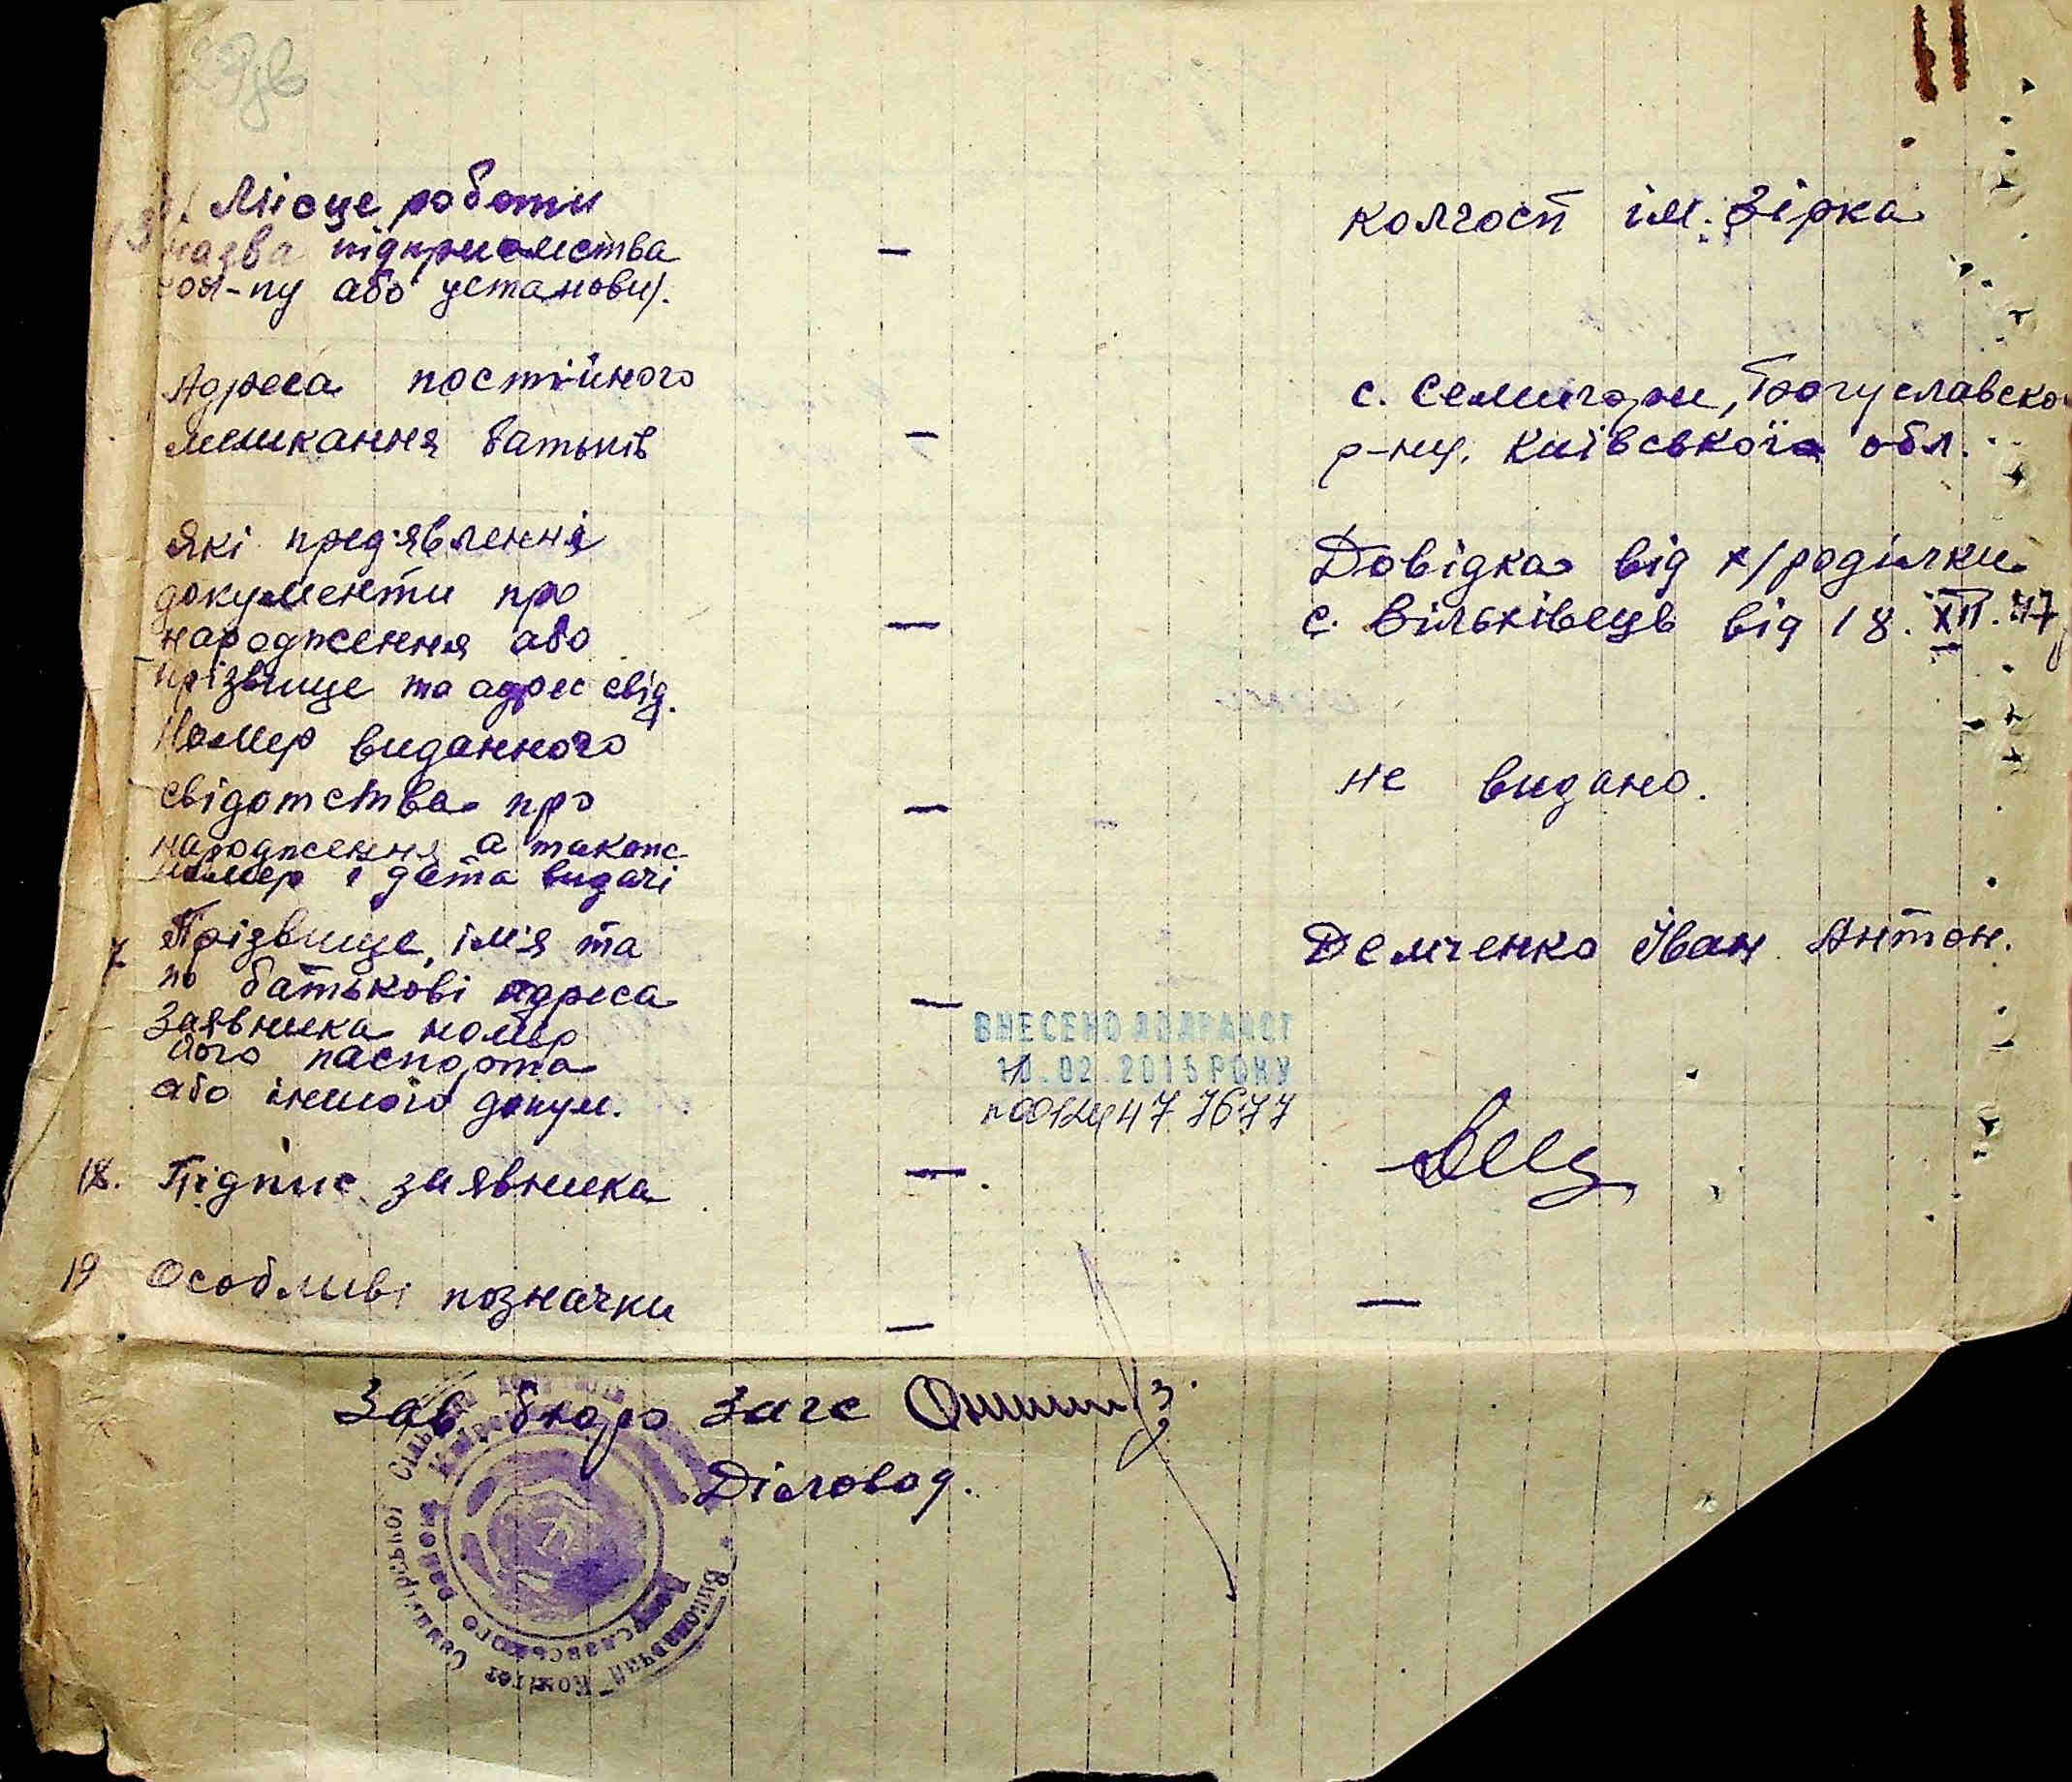 Місце роботи
назва підприємства
або установи).
—
колгосп ім. Зірка
Адреса постійного
мешкання батьків
—
с. Семигори, Богуславсько
р-ну, Київської обл.
Які пред'явленні
документи про
народження або
прізвище та адрес свід.
—
Довідка від к/роділки
с. Вільхівець від 18. XII. 47
Номер виданного
свідотства про
народження а також
номер і дата видачі
—
не видано.
7 Прізвище, ім'я та
по батькові адреса
заявника номер
його паспорта
або іншого докум.
—
Демченко Іван Антон.
ВНЕСЕНО ДО ДРАЦСГ
10.02.2015 РОКУ
18. Підпис заявника
—
19 Особливі позначки
—
—
Зав бюро загс
Діловод.
Виконавчий Комітет Семигірської Сільської
Богуславського району Київської